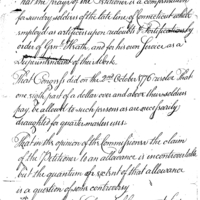 That the prayer of the Petitioner is a compensation
for sundry soldiers of the late line of Connecticut while
employed as artificers upon redoubts & Fortifications by
order of Genl Heath, and for his own services as a
Superintendant of the Work.
That Congress did on the 2nd October 1776 resolve that
one sixth part of a dollar over and above their soldiers
pay, be allowed to such persons as are necessarily
draughted for Quartermasters.
That in the opinion of the Commissioner the claim
of the Petitioner to an allowance is incontrovertable
but the quantum of such of that allowance
is a question of some controversy